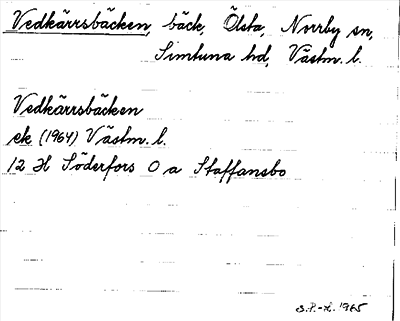 Vedkärrsbäcken, bäck, Ölsta, Norrby sn,
Simtuna hd, Västm. l.
Vedkärrsbäcken
ek (1964) Västm. l.
12 H Söderfors O a Staffansbo
S.P.-H. 1965